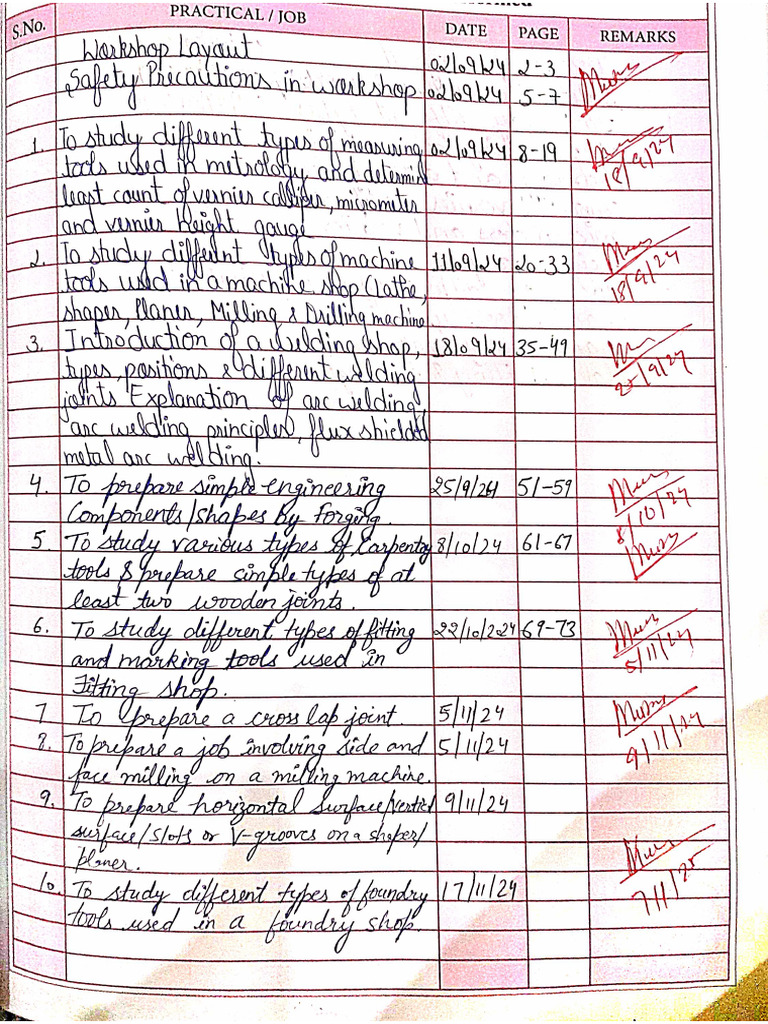 S.No. PRACTICAL / JOB DATE PAGE REMARKS
Workshop Layout 02/09/24 2-3
Safety Precautions in workshop 02/09/24 5-7
1. To study different types of measuring 02/09/24 8-19
tools used in metrology and determin 18/9/24
least count of vernier calliper, micrometer
and vernier height gauge
2. To study different types of machine 11/09/24 20-33
tools used in a machine shop (Lathe, 18/9/24
shaper, Planer, Milling & Drilling machine
3. Introduction of a welding shop, 18/09/24 35-49
types, positions & different welding 25/9/24
joints Explanation of arc welding,
arc welding principles, flux shielded
metal arc welding.
4. To prepare simple engineering 25/9/24 51-59
Components/shapes by forging. 8/10/24
5. To study various types of Carpentry 8/10/24 61-67
tools & prepare simple types of at
least two wooden joints.
6. To study different types of fitting 22/10/224 69-73
and marking tools used in 5/11/24
Fitting shop.
7 To prepare a cross lap joint. 5/11/24
8. To prepare a job involving side and 5/11/24 9/11/24
face milling on a milling machine.
9. To prepare horizontal surface/vertical 9/11/24
surface/slots or V-grooves on a shaper/
planer.
10. To study different types of foundry 17/11/24 7/11/25
tools used in a foundry shop.